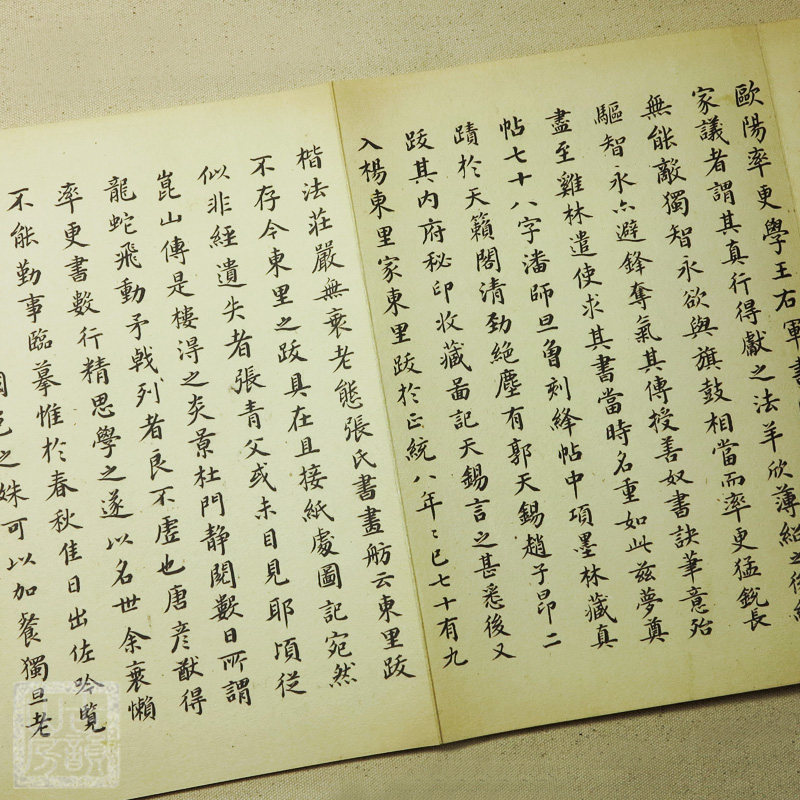 歐陽率更學王右軍書
家議者謂其真行得獻之法羊欣薄紹之後
無能敵獨智永欲與旗鼓相當而率更猛銳長
驅智永亦避鋒奪氣其傳授善奴書訣筆意殆
盡至雞林遣使求其書當時名重如此茲夢奠
帖七十八字潘師旦曾刻絳帖中項墨林藏真
蹟於天籟閣清勁絕塵有郭天錫趙子昂二
跋其內府秘印收藏啚記天錫言之甚悉後又
入楊東里家東里跋於正統八年〻已七十有九
楷法莊嚴無衰老態張氏書畫舫云東里跋
不存今東里之跋具在且接紙處圖記宛然
似非經遺失者張青父或未目見耶頃從
崑山傳是樓淂之炎景杜門靜閱數日所謂
龍蛇飛動矛戟列者良不虛也唐彥猷得
率更書數行精思學之遂以名世余衰懶
不能勤事臨摹惟於春秋佳日出佐吟覧
色之姝可以加餐獨旦老